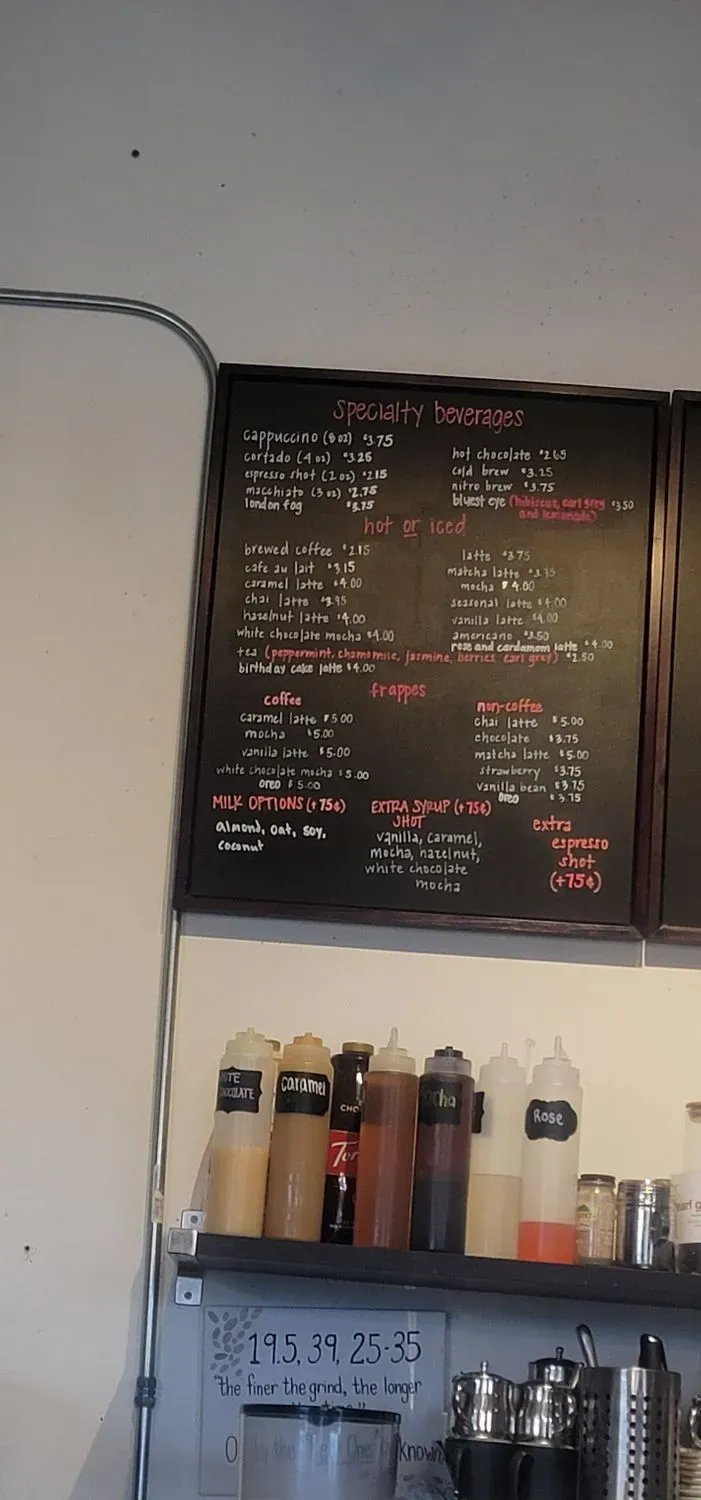 Specialty beverages
cappuccino (8 oz) $3.75
cortado (4 oz) $3.25
espresso shot (2 oz) $2.15
macchiato (3 oz) $2.75
london fog $3.75
hot chocolate $2.65
cold brew $3.25
nitro brew $3.75
bluest eye (hibiscus, earl grey $3.50
and lemonade)
hot or iced
brewed coffee $2.15
cafe au lait $3.15
caramel latte $4.00
chai latte $3.95
hazelnut latte $4.00
white chocolate mocha $4.00
latte $3.75
matcha latte
mocha $4.00
seasonal latte $4.00
vanilla latte $4.00
americano $3.50
rose and cardamom latte $4.00
tea (peppermint, chamomile, jasmine, berries, earl grey) $2.50
birthday cake latte $4.00
frappes
coffee
caramel latte $5.00
mocha $5.00
vanilla latte $5.00
white chocolate mocha $5.00
oreo $5.00
non-coffee
chai latte $5.00
chocolate $3.75
matcha latte $5.00
strawberry $3.75
vanilla bean $3.75
oreo $3.75
MILK OPTIONS (+75¢)
almond, oat, soy,
coconut
EXTRA SYRUP (+75¢)
SHOT
vanilla, caramel,
mocha, hazelnut,
white chocolate
mocha
extra
espresso
shot
(+75¢)
caramel
CHO
Tor
Rose
19.5, 39, 25-35
"the finer the grind, the longer
known